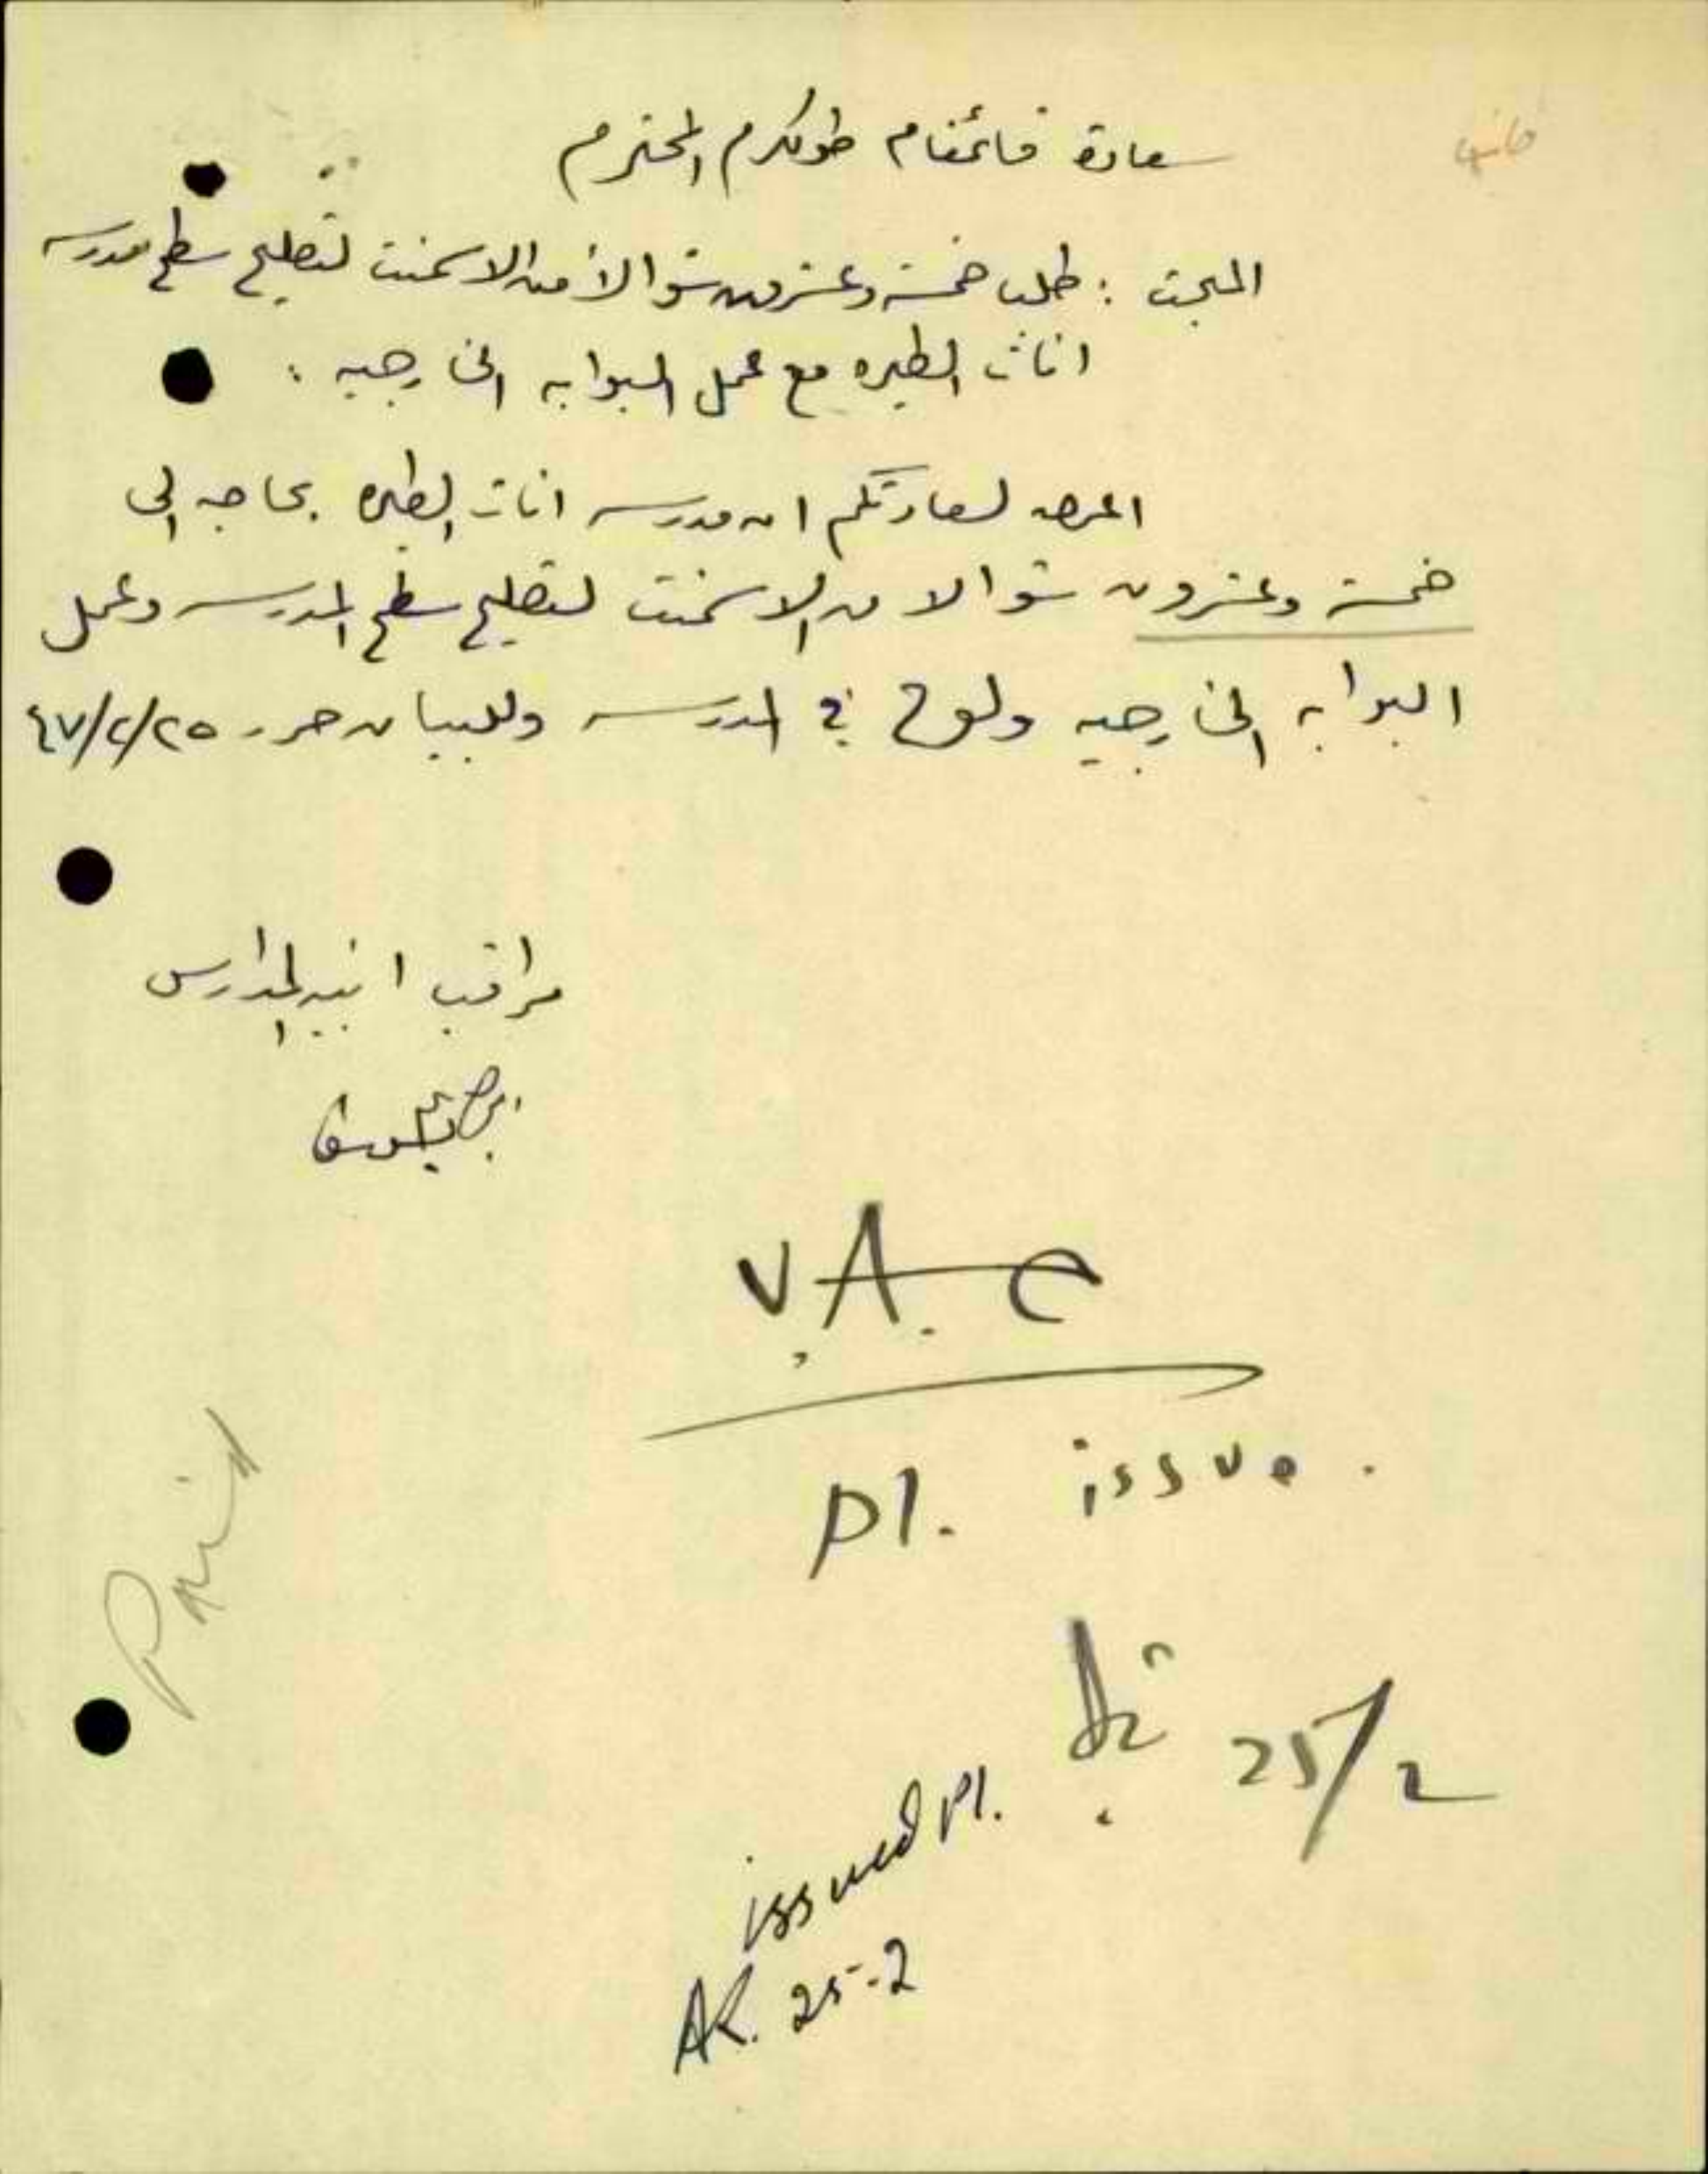 سعادة قائمقام طولكرم المحترم
المبحث : طلب خمسة وعشرون شوالاً من الاسمنت لتصليح سطح مدرسة
اناث الطيره مع عمل البوابه الخارجيه :
اعرض لسعادتكم ان مدرسة اناث الطيره بحاجه الى
خمسة وعشرون شوالا من الاسمنت لتصليح سطح المدرسه وعمل
البوابه الخارجيه ولوح في المدرسه وللبيان حرر ٢٥/٢/٤٧
مراقب ابنية المدارس
V.A.C
pl. issue.
25/2
issued pl.
AK. 25-2